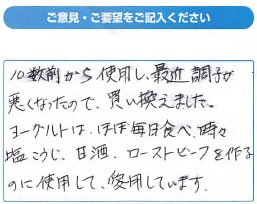 ご意見・ご要望をご記入ください
10数前から使用し、最近調子が
悪くなったので、買い換えました。
ヨーグルトは、ほぼ毎日食べ、時々
塩こうじ、甘酒、ローストビーフを作る
のに使用して、愛用しています。